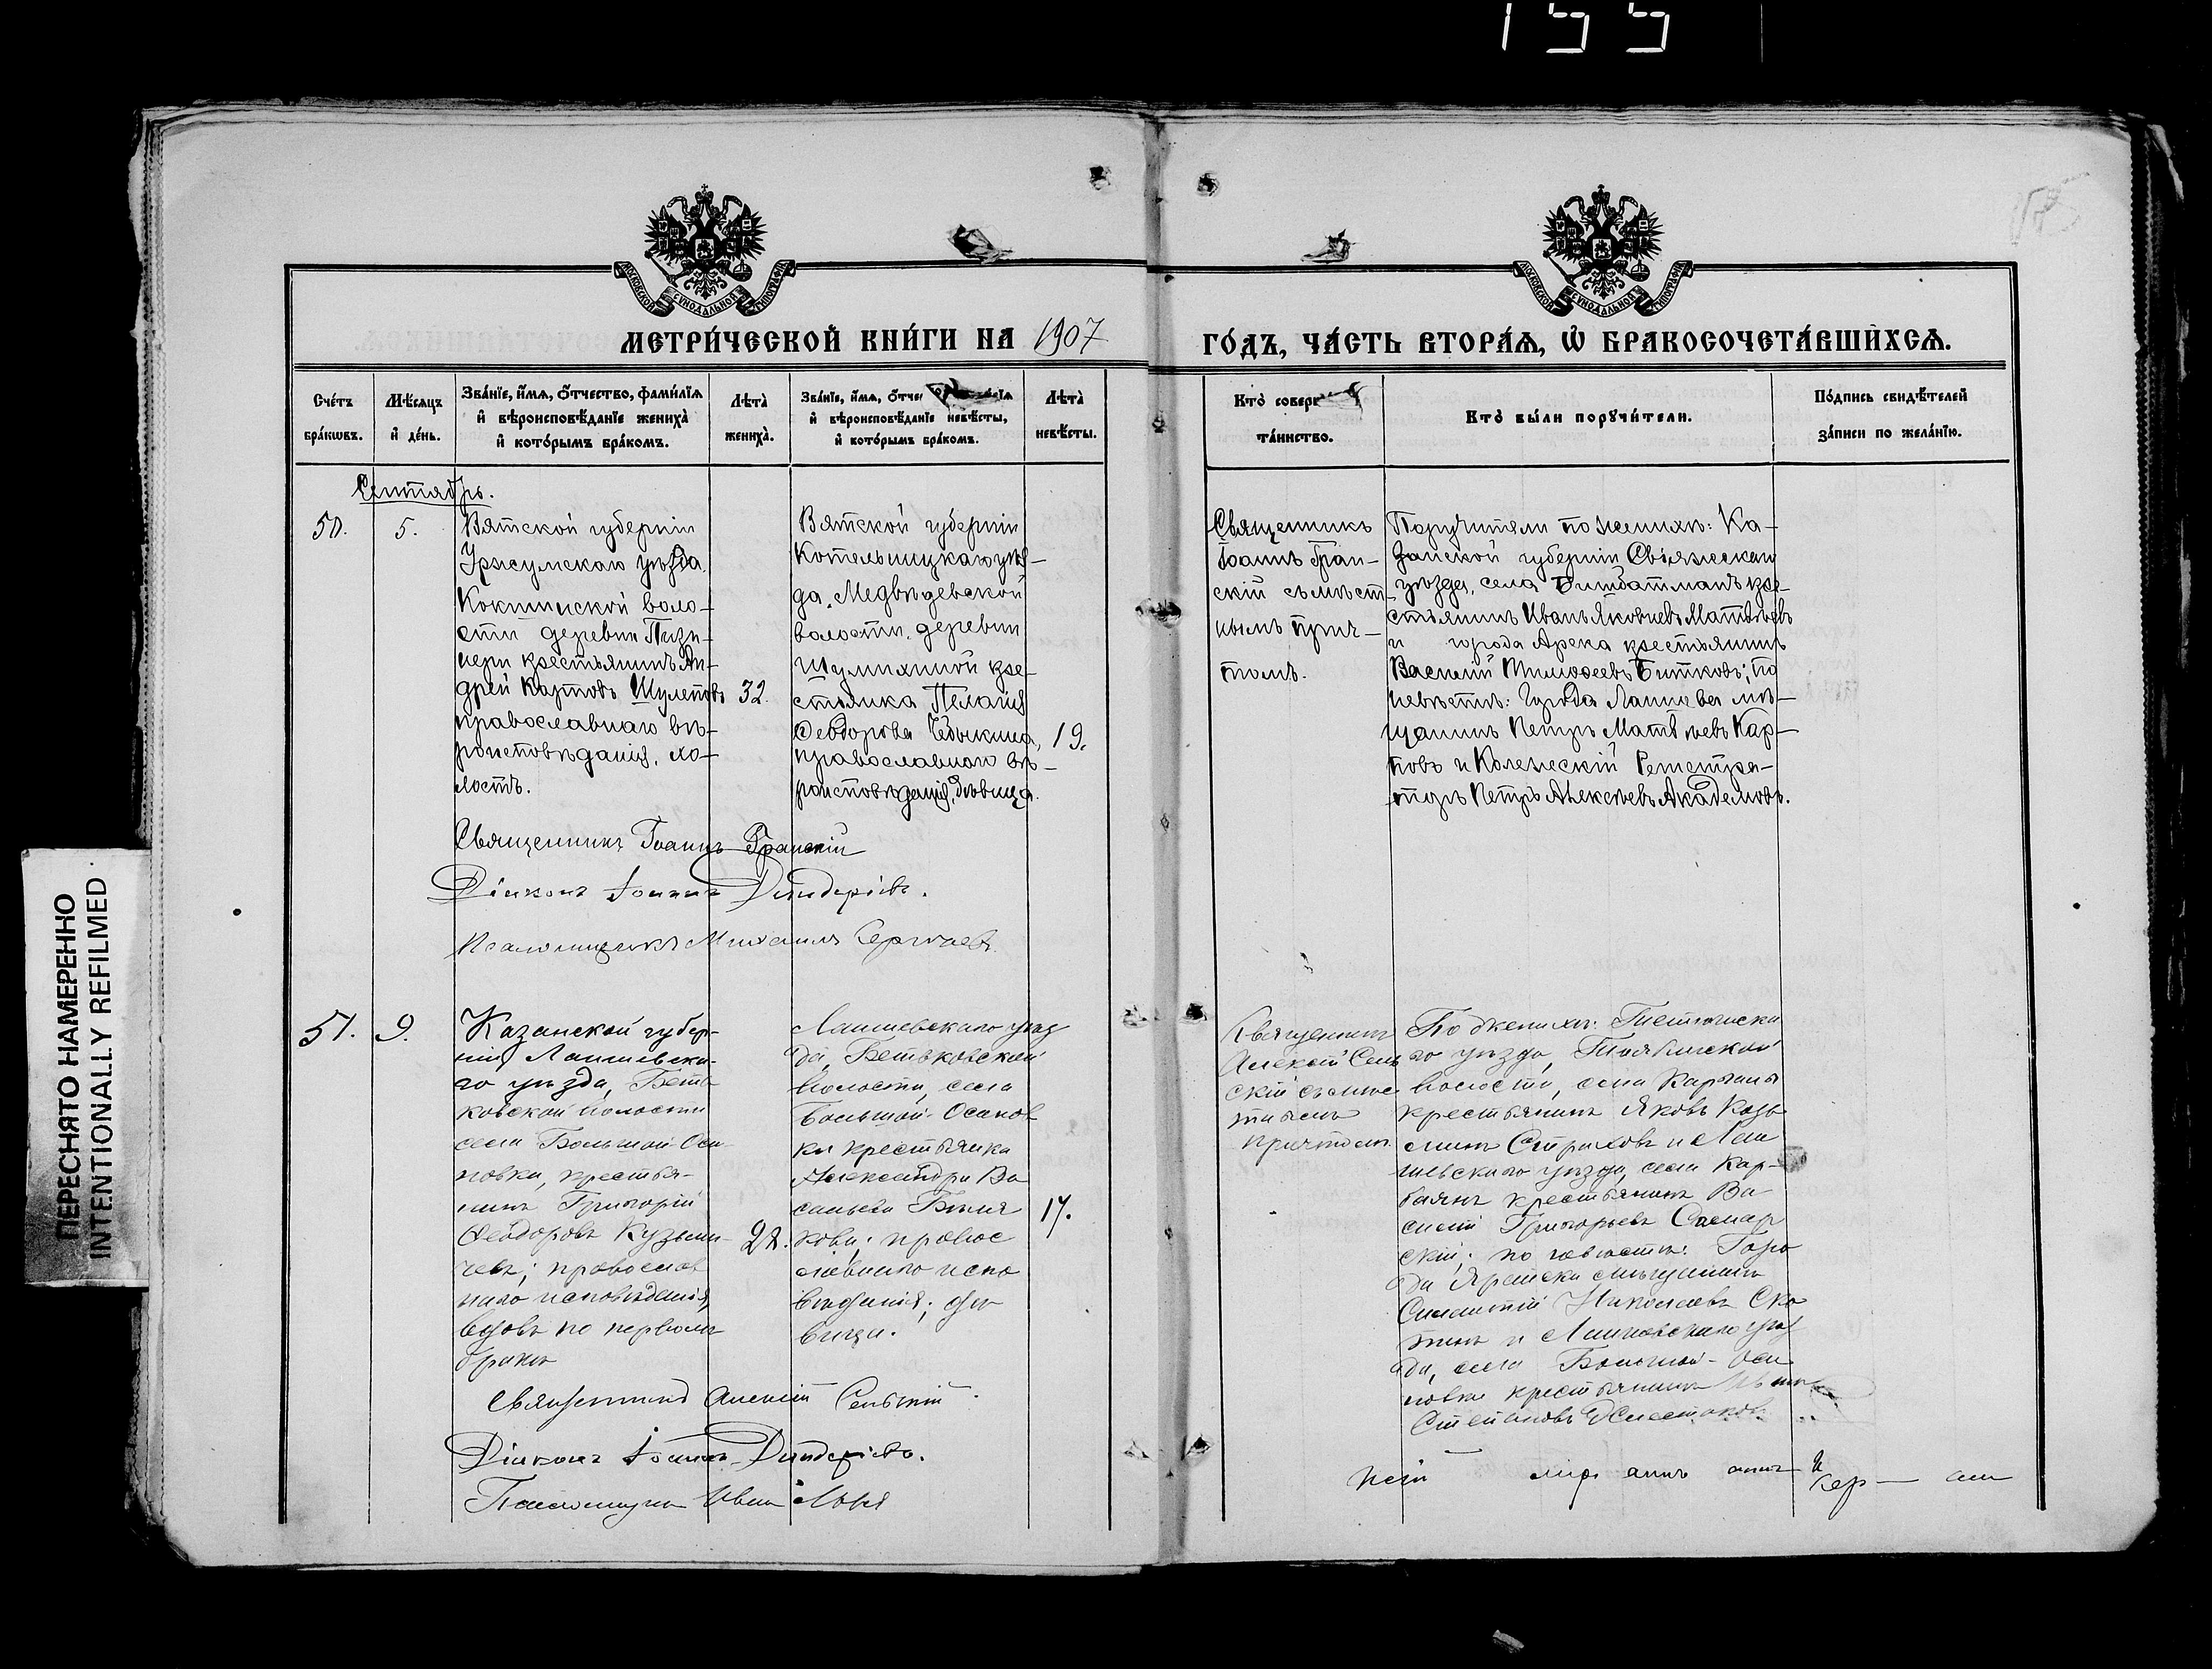 155
МЕТРИ́ЧЕСКОЙ КНИ́ГИ НА 1907
ГО́ДЪ, ЧА́СТЬ ВТОРА́Ѧ, Ѡ҆ БРАКОСОЧЕТА́ВШИХСѦ.
Сче́тъ
бра́ковъ.
Мѣ́сяцъ
и҆ де́нь.
Зва́нїе, и҆́мѧ, ѻ҆́тчество, фами́лїѧ
и҆ вѣроисповѣ́данїе жениха̀
и҆ кото́рымъ бра́комъ.
Лѣта̀
жениха̀.
и҆ вѣроисповѣ́данїе невѣ́сты,
и҆ кото́рымъ бра́комъ.
Лѣта̀
невѣ́сты.
Кто̀
та́инство.
Кто̀ бы́ли порꙋчи́тели.
По́дпись свидѣ́телей
за́писи по жела́нїю.
Сентябрь.
50.
5.
Вятской губерніи
Уржумскаго уѣзда
воло-
сти деревни
крестьянинъ Ан-
дрей Карповъ Шулеповъ
православнаго вѣ-
роисповѣданія, хо-
лостъ.
32.
Вятской губерніи
Котельницкаго уѣз-
да, Медвѣдевской
волости, деревни
кре-
стьянка Пелагія
Ѳеодорова
православнаго вѣ-
роисповѣданія, дѣвица.
19.
Священникъ
Іоаннъ Гран-
скій съ мѣст-
нымъ прич-
томъ.
Поручители по женихѣ: Ка-
занской губерніи Свіяжскаго
уѣзда, села кре-
стьянинъ Иванъ Яковлевъ Матвѣевъ
и города Арска крестьянинъ
Василій Тимоѳеевъ Битковъ; по
невѣстѣ: Города Лаишева мѣ-
щанинъ Петръ Матвѣевъ Кар-
повъ и Коллежскій Регистра-
торъ Петръ Алексѣевъ Академовъ.
Священникъ Іоаннъ Гранскій
Діаконъ Іоаннъ
Псаломщикъ Михаилъ Сергѣевъ.
51.
9.
Казанской губер-
ніи Лаишевска-
го уѣзда, Бетъ-
ковской волости
села Большой Оси-
новки, крестья-
нинъ Григорій
Ѳеодоровъ Кузьми-
чевъ; православ
наго исповѣданія,
вдовъ по первомъ
бракѣ
22.
Лаишевскаго уѣз
да, Бетьковской
волости, села
Большой Осинов
ки крестьянка
Александра Ва
сильева
кова; правос
лавнаго испо
вѣданія; дѣ
вица.
17.
Священникъ
Алексій Сель
скій съ мѣс
тнымъ
причтомъ.
По женихѣ: Тетюшска
го уѣзда,
волости, села
крестьянинъ Яковъ Козь
минъ Страховъ и Лаи
шевскаго уѣзда, села Кар-
баянъ крестьянинъ Ва
силій Григорьевъ Самар
скій; по невѣстѣ: Горо
да Яранска мѣщанинъ
Николаевъ
и Лаишевскаго уѣз
да, села Большой-Оси
новки крестьянинъ
Степановъ
Священникъ Алексій Сельскій.
Діаконъ Іоаннъ
Псаломщикъ Иванъ
ПЕРЕСНЯТО НАМЕРЕННО
INTENTIONALLY REFILMED